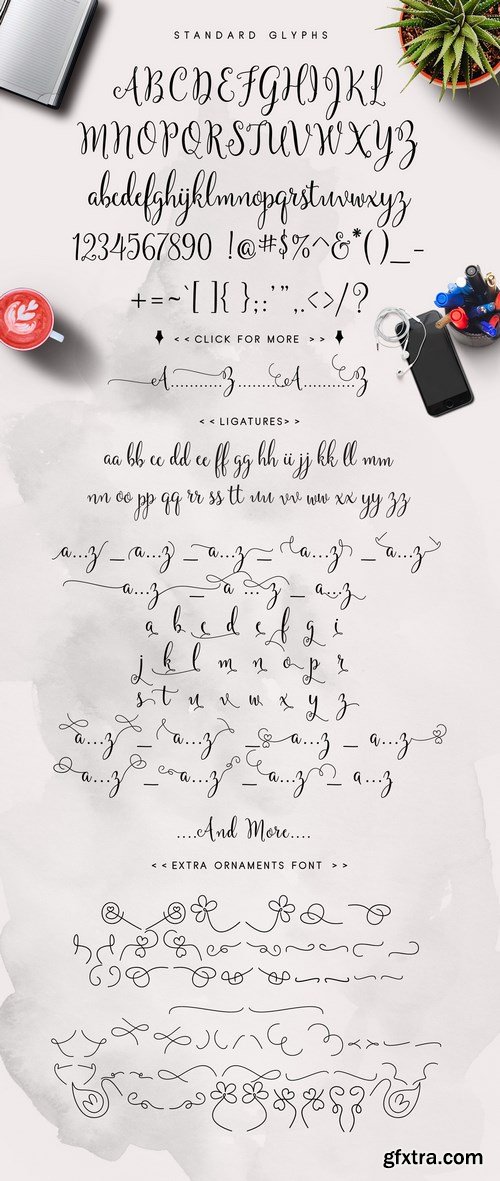 STANDARD GLYPHS
ABCDEFGHIJKL
MNOPQRSTUVWXYZ
abcdefghijklmnopqrstuvwxyz
1234567890 !@#$%^&*()_-
+=~`[]{};:'",.<>/?
<< CLICK FOR MORE >>
A...........Z........A...........Z
<<LIGATURES>>
aa bb cc dd ee ff gg hh ii jj kk ll mm
nn oo pp qq rr ss tt uu vv ww xx yy zz
a...z _ a...z _ a...z _ a...z _ a...z
a...z _ a...z _ a...z
a b c d e f g i
j k l m n o p r
s t u v w x y z
a...z _ a...z _ a...z _ a...z
a...z _ a...z _ a...z _ a...z
....And More....
<<EXTRA ORNAMENTS FONT >>
gfxtra.com